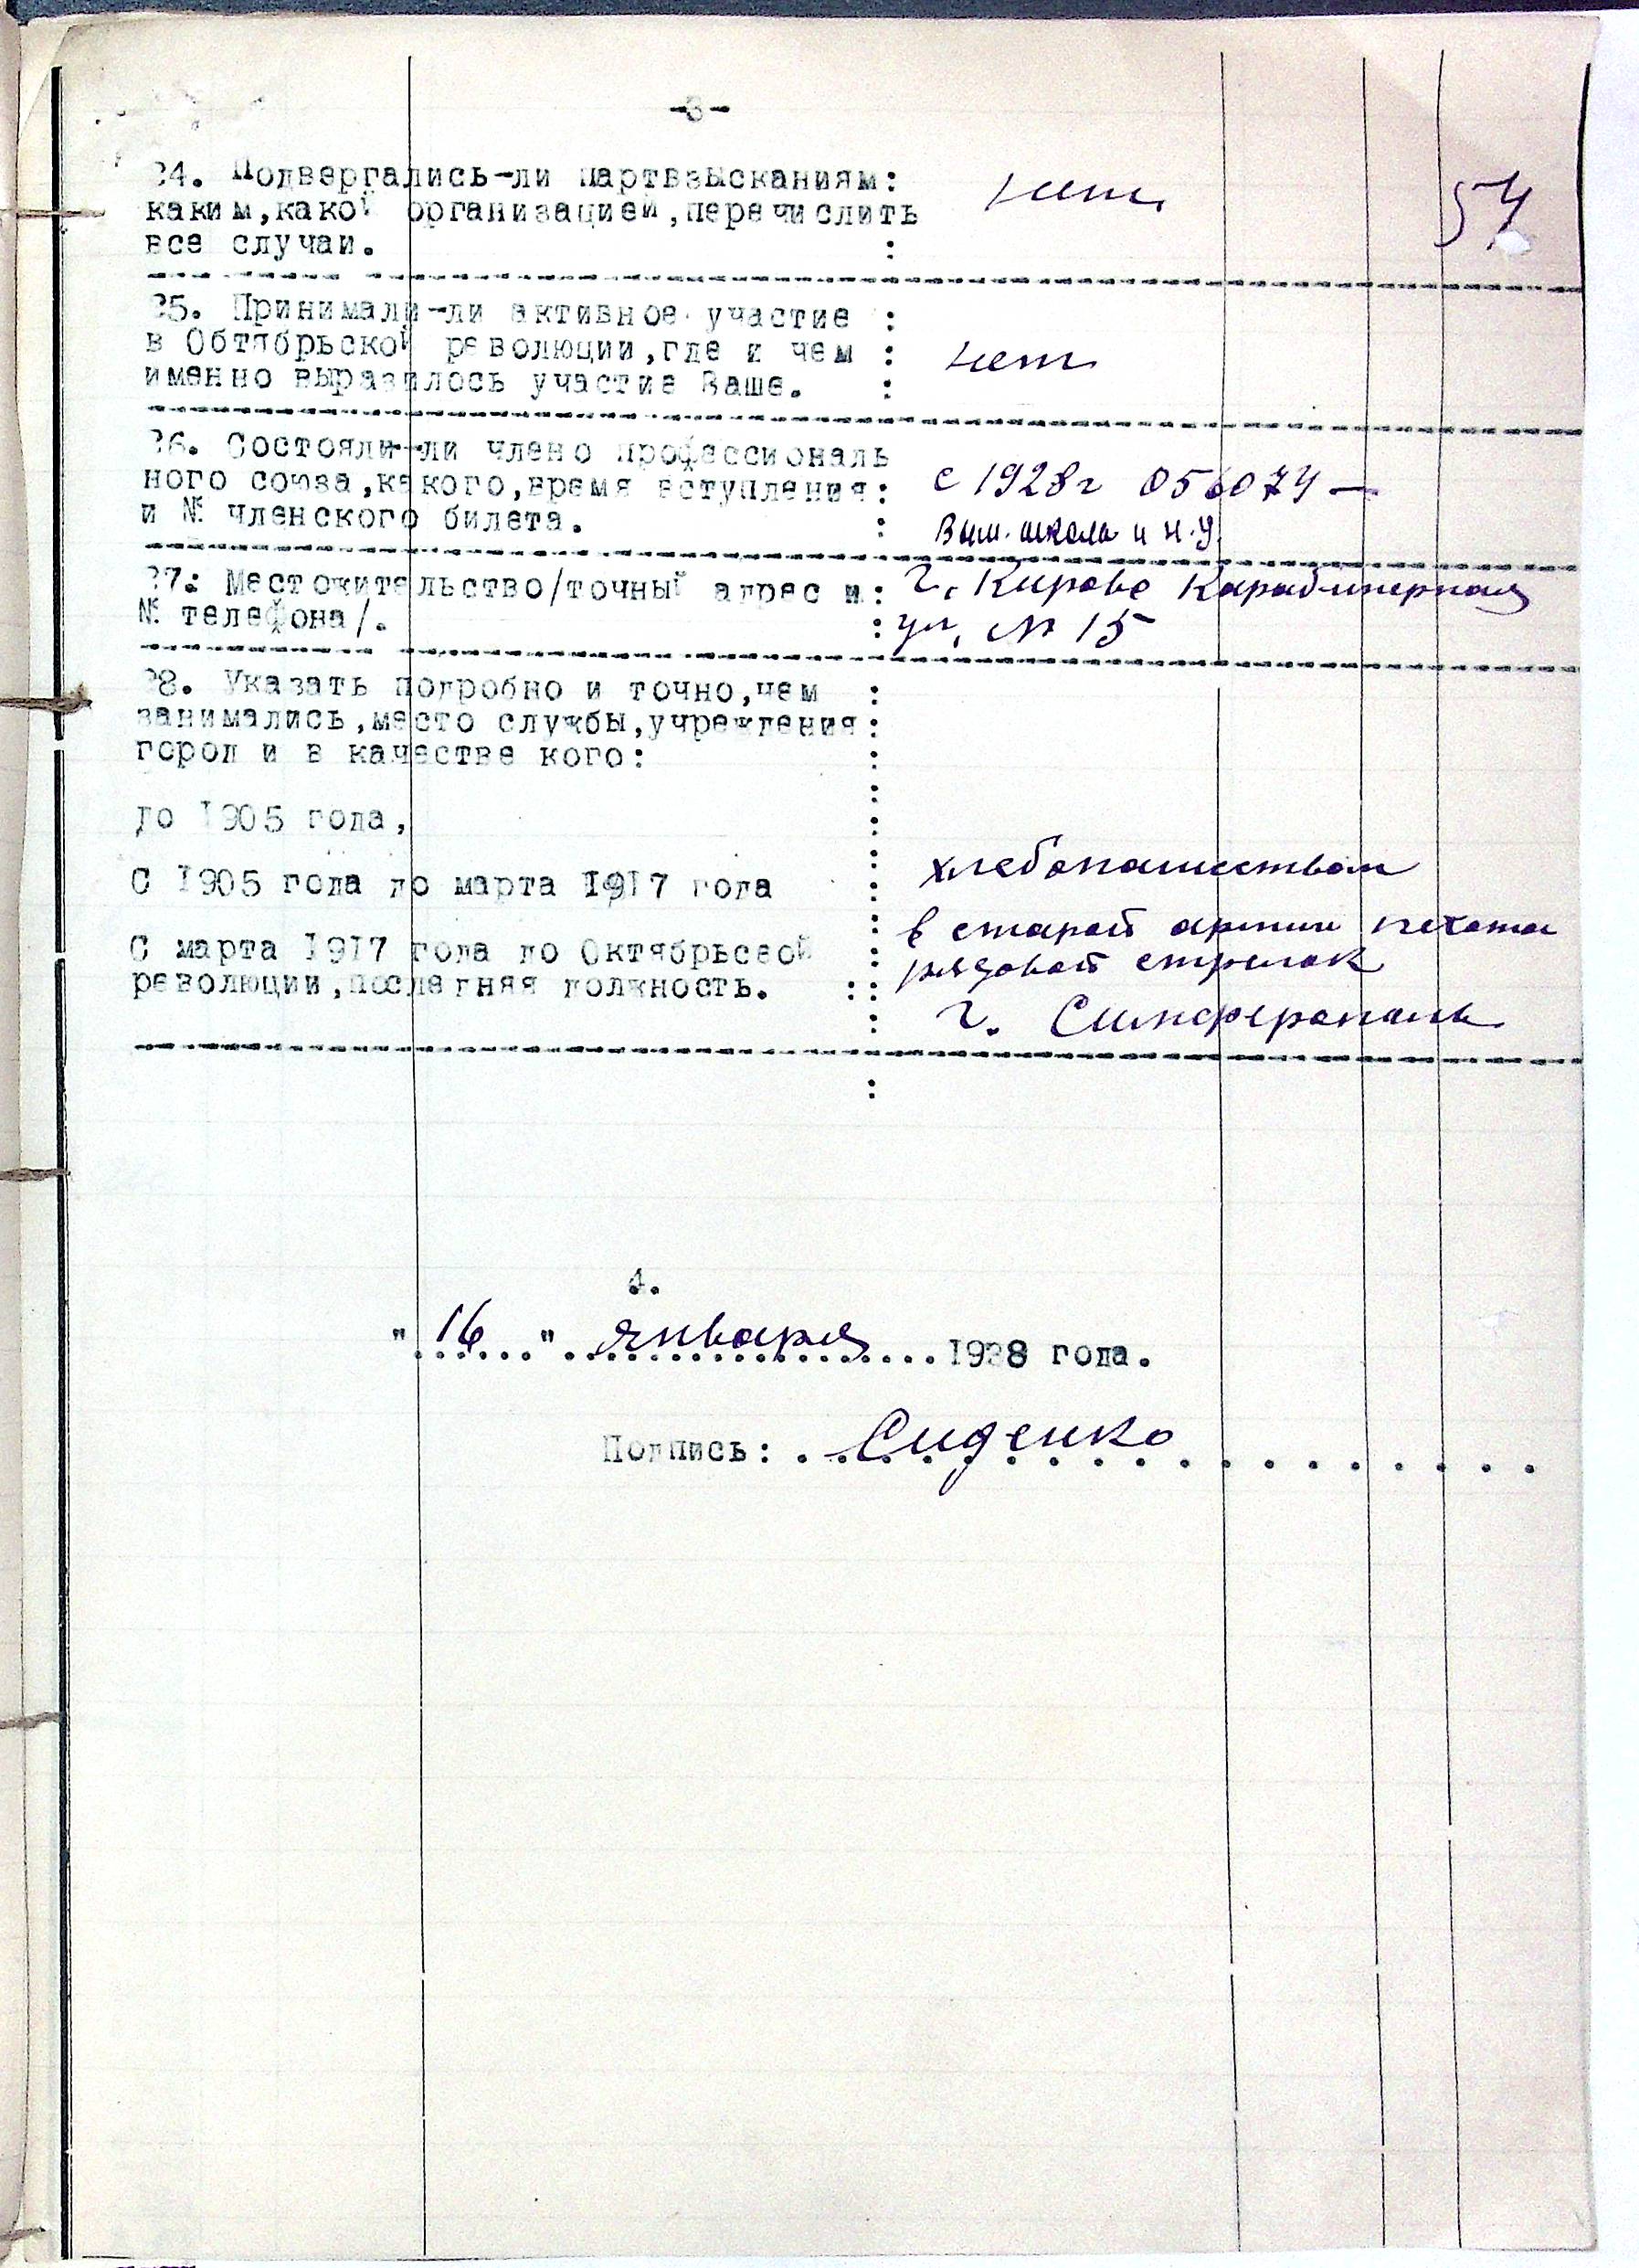 -3-
54
24. Подвергались-ли партвзысканиям: нет
каким,какой организацией,перечислить
все случаи. :
25. Принимали-ли активное участие :
в Обтябрьской революции,где и чем : нет
именно выразилось участие Ваше. :
26. Состояли-ли члено профессиональ
ного союза,какого,время вступления: с 1928 г 056074 —
и № членского билета. : Выш. школы и Н.У.
27. Местожительство/точный адрес и: г. Кирово Карабинерная
№ телефона/. : ул. № 15
28. Указать подробно и точно,чем :
занимались,место службы,учреждения:
город и в качестве кого: :
до 1905 года, :
С 1905 года до марта 1917 года : хлебопашеством
в старой армии пехота
С марта 1917 года до Октябрьсвой : рядовой стрелок
революции,последняя должность. :: г. Симферополь
:
4.
"16" января 1938 года.
Подпись: Сиденко